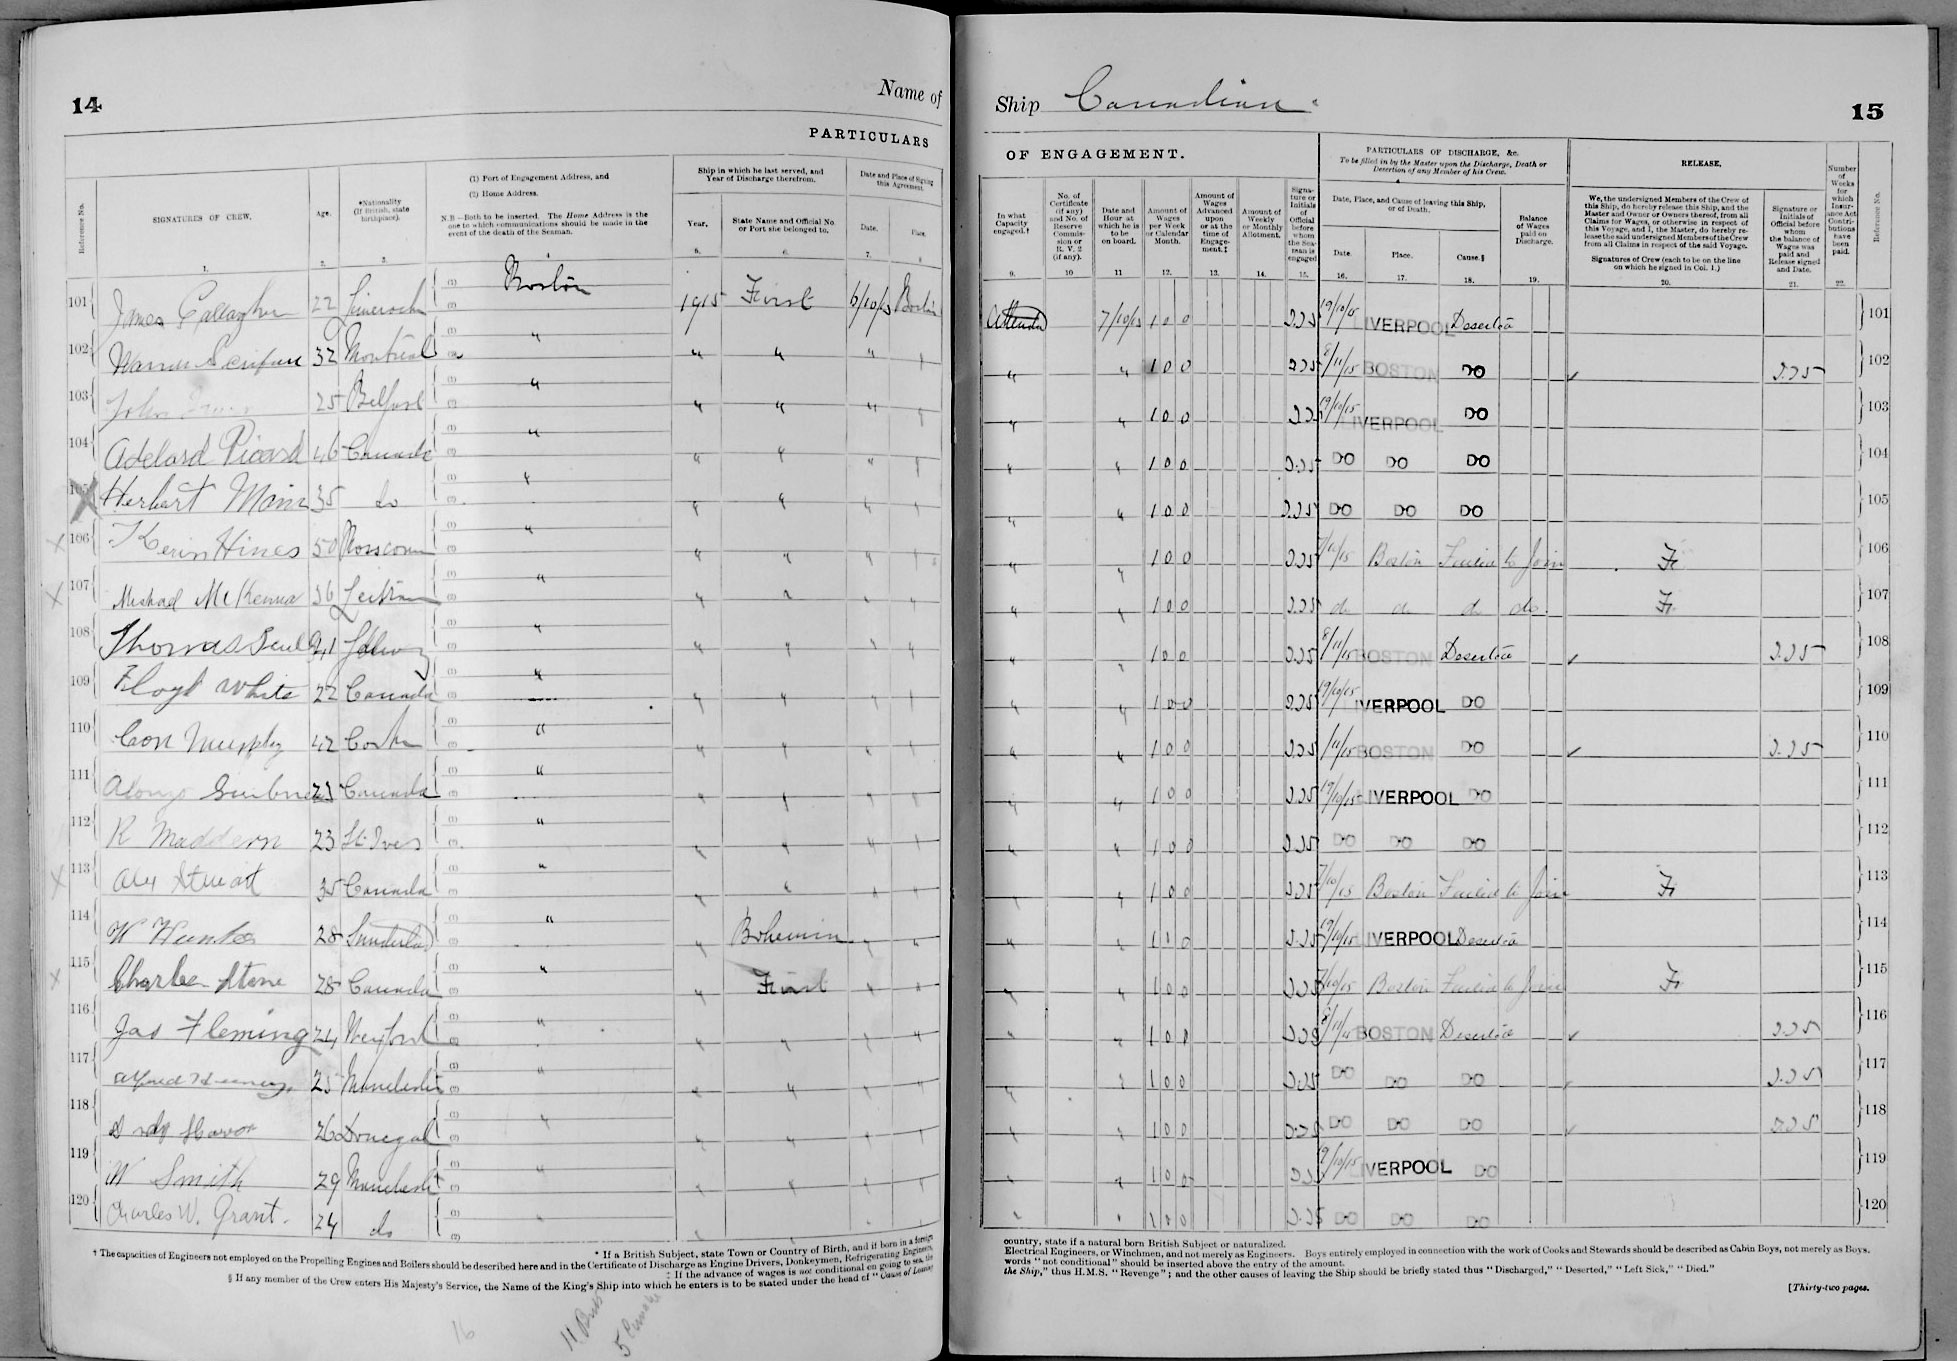 14
Name of
PARTICULARS
Reference No.
SIGNATURES OF CREW.
Age.
*Nationality (If British, state birthplace).
(1) Port of Engagement Address, and
(2) Home Address.
N.B.—Both to be inserted. The Home Address is the one to which communications should be made in the event of the death of the Seaman.
Ship in which he last served, and Year of Discharge therefrom.
Year.
State Name and Official No. or Port she belonged to.
Date and Place of Signing this Agreement.
Date.
Place.
1. 2. 3. 4 5. 6. 7. 8
101 James Gallagher 22 Limerock Boston 1915 First 6/10/15 Boston
102 32 Montreal " " " "
103 John 25 Belfast " " " "
104 Adelard Picard 46 Canada " " " "
105 Herbert 35 do " " " "
106 Kerin Hines 50 Roscom " " " "
107 Michael McKenna 36 Leitrim " " " "
108 Thomas 41 Galway " " " "
109 Floyd White 22 Canada " " " "
110 Con Murphy 42 Cork " " " "
111 23 Canada " " " "
112 R Maddern 23 St Ives " " " "
113 Alex Stewart 35 Canada " " " "
114 W 28 Sunderland " " Bohemian " "
115 Charles Stone 28 Canada " " First " "
116 Jas Fleming 24 Wexford " " " "
117 Alfred 25 Manchester " " " "
118 26 Donegal " " " "
119 W Smith 29 Manchester " " " "
120 Charles W. Grant. 24 do " " " "
* If a British Subject, state Town or Country of Birth, and if born in a foreign
† The capacities of Engineers not employed on the Propelling Engines and Boilers should be described here and in the Certificate of Discharge as Engine Drivers, Donkeymen, Refrigerating Engineers,
‡ If the advance of wages is not conditional on going to sea, the
§ If any member of the Crew enters His Majesty's Service, the Name of the King's Ship into which he enters is to be stated under the head of "Cause of Leaving
16
Ship Canadian
15
OF ENGAGEMENT.
PARTICULARS OF DISCHARGE, &c.
To be filled in by the Master upon the Discharge, Death or Desertion of any Member of his Crew.
RELEASE.
In what Capacity engaged.†
No. of Certificate (if any) and No. of Reserve Commission or R. V. 2 (if any).
Date and Hour at which he is to be on board.
Amount of Wages per Week or Calendar Month.
Amount of Wages Advanced upon or at the time of Engagement.‡
Amount of Weekly or Monthly Allotment.
Signature or Initials of Official before whom the Seaman is engaged
Date, Place, and Cause of leaving this Ship, or of Death.
Date.
Place.
Cause.§
Balance of Wages paid on Discharge.
We, the undersigned Members of the Crew of this Ship, do hereby release this Ship, and the Master and Owner or Owners thereof, from all Claims for Wages, or otherwise in respect of this Voyage, and I, the Master, do hereby release the said undersigned Members of the Crew from all Claims in respect of the said Voyage.
Signatures of Crew (each to be on the line on which he signed in Col. 1.)
Signature or Initials of Official before whom the balance of Wages was paid and Release signed and Date.
Number of Weeks for which Insurance Act Contributions have been paid.
Reference No.
9. 10 11 12. 13. 14. 15. 16. 17. 18. 19. 20. 21. 22.
7/10/15 1 0 0 19/10/15 LIVERPOOL Deserted 101
" " 1 0 0 8/11/15 BOSTON DO 102
" " 1 0 0 19/10/15 LIVERPOOL DO 103
" " 1 0 0 DO DO DO 104
" " 1 0 0 DO DO DO 105
" " 1 0 0 7/10/15 Boston Failed to Join 106
" " 1 0 0 do do do do 107
" " 1 0 0 8/11/15 BOSTON Deserted 108
" " 1 0 0 19/10/15 LIVERPOOL DO 109
" " 1 0 0 BOSTON DO 110
" " 1 0 0 19/10/15 LIVERPOOL DO 111
" " 1 0 0 DO DO DO 112
" " 1 0 0 7/10/15 Boston Failed to Join 113
" " 1 1 0 19/10/15 LIVERPOOL Deserted 114
" " 1 0 0 7/10/15 Boston Failed to Join 115
" " 1 0 0 BOSTON Deserted 116
" " 1 0 0 DO DO DO 117
" " 1 0 0 DO DO DO 118
" " 1 0 0 19/10/15 LIVERPOOL DO 119
" " 1 0 0 DO DO DO 120
country, state if a natural born British Subject or naturalized.
Electrical Engineers, or Winchmen, and not merely as Engineers. Boys entirely employed in connection with the work of Cooks and Stewards should be described as Cabin Boys, not merely as Boys.
words "not conditional" should be inserted above the entry of the amount.
the Ship," thus H.M.S. "Revenge"; and the other causes of leaving the Ship should be briefly stated thus "Discharged," "Deserted," "Left Sick," "Died."
[Thirty-two pages.